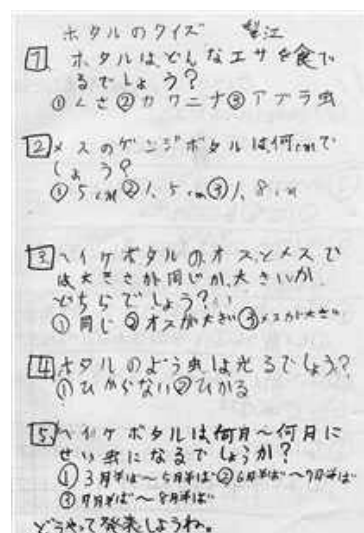 ホタルのクイズ
1 ホタルは、どんなエサを食べ
るでしょう?
①くさ②カワニナ③アブラ虫
2 メスのゲンジボタルは何cmで
しょう?
①5cm②1.5cm③1.8cm
3 ヘイケボタルのオスとメスで
は大きさが同じか、大きいか
どちらでしょう?
①同じ②オスが大きい③メスが大きい
4 ホタルのよう虫は光るでしょう?
①ひからない②ひかる
5 ヘイケボタルは何月〜何月に
せい虫になるでしょうか?
①3月半ば〜5月半ば②6月半ば〜7月半ば
③7月半ば〜8月半ば
どうやって発表しようね。